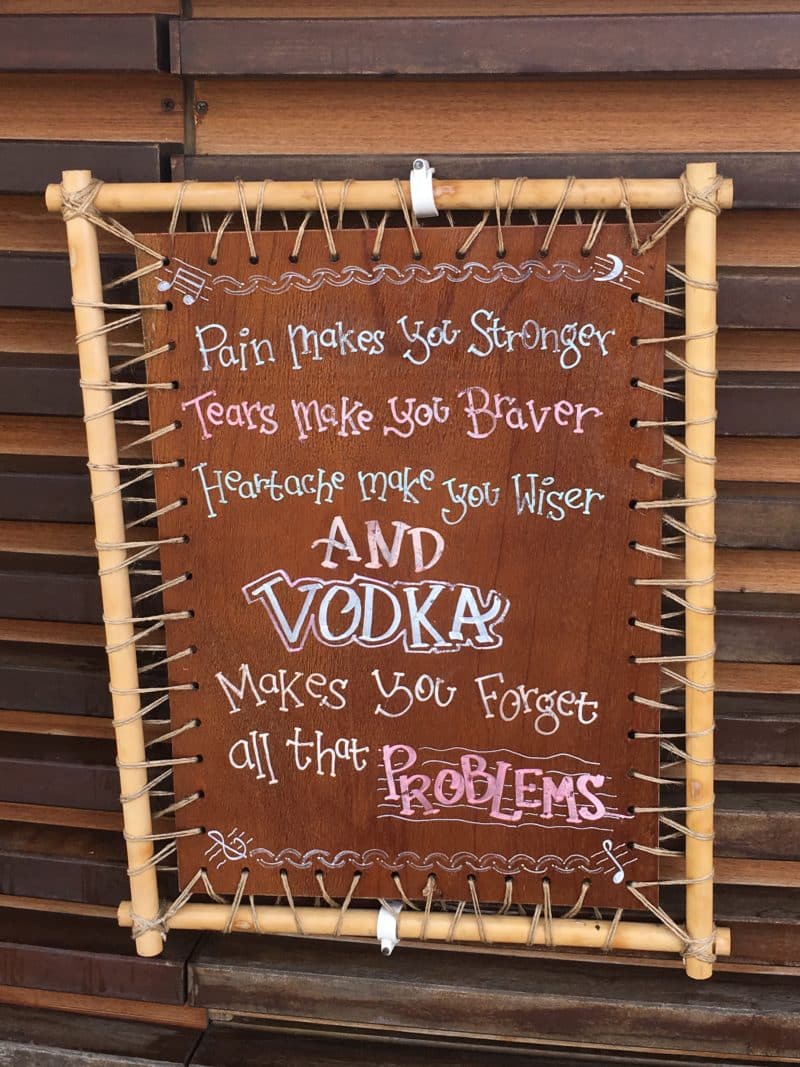 Pain makes you Stronger
Tears make you Braver
Heartache make you Wiser
AND
VODKA
Makes you Forget
all that PROBLEMS